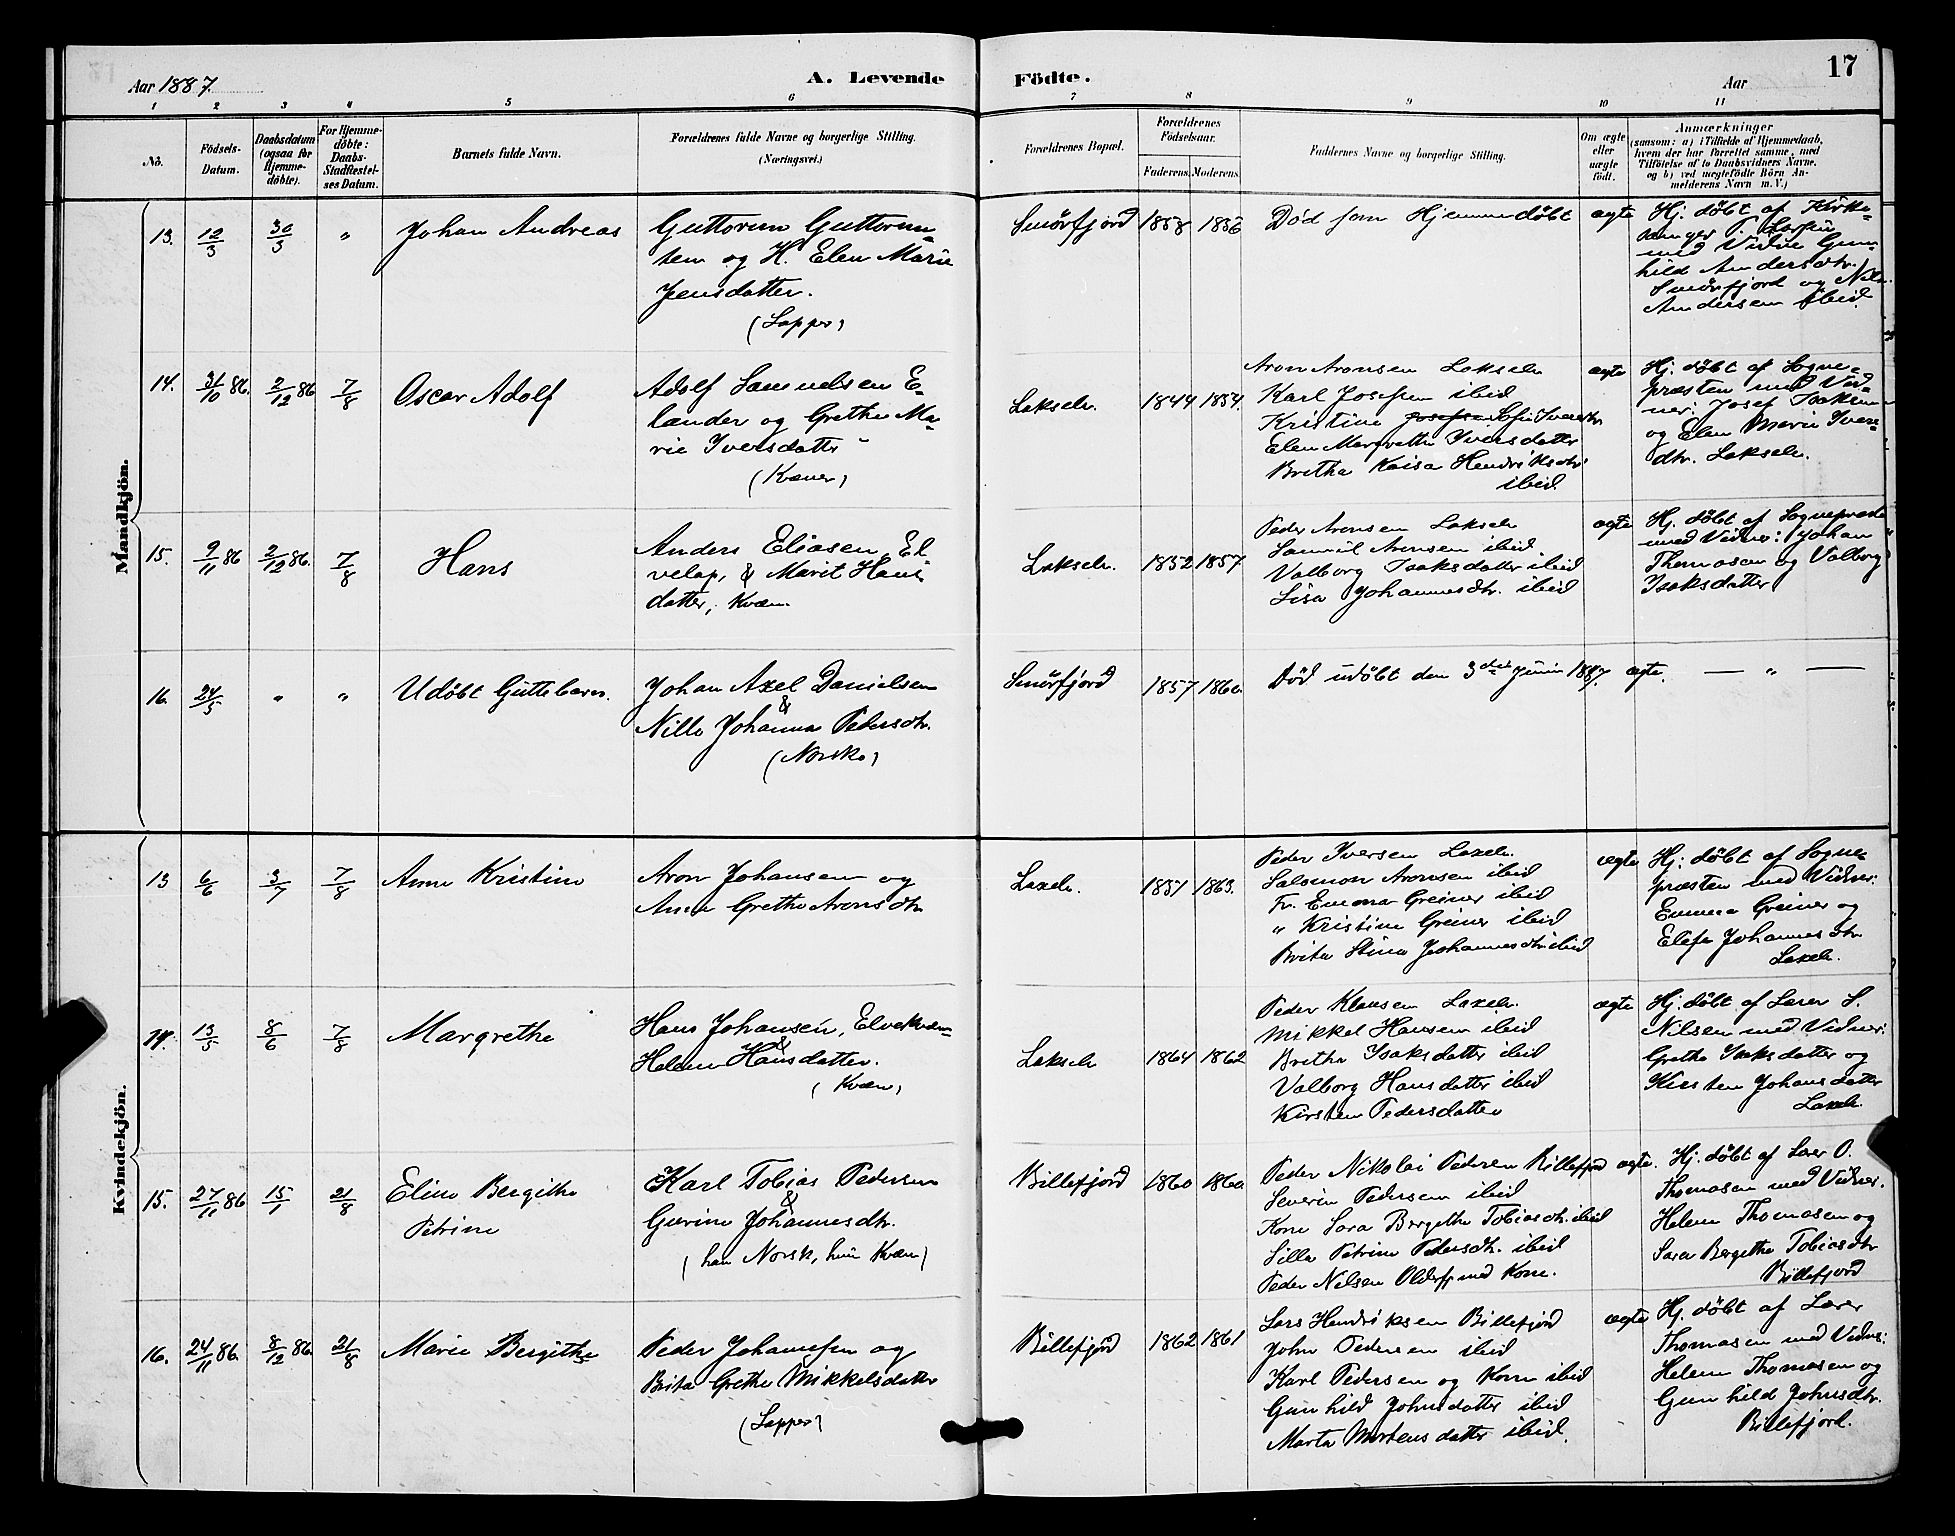 Aar 1887. A. Levende Födte. Aar 17
1 2 3 4 5 6 7 8 9 10 11
No.
Födsels-Datum.
Daabsdatum (ogsaa for Hjemmedöbte).
For Hjemmedöbte: Daabs-Stadfæstelses Datum.
Barnets fulde Navn.
Forældrenes fulde Navne og borgerlige Stilling.
(Næringsvei.)
Forældrenes Bopæl.
Forældrenes Födselsaar.
Faderens. Moderens.
Faddernes Navne og borgerlige Stilling.
Om ægte eller uægte födt.
Anmærkninger
(saasom: a) i Tilfælde af Hjemmedaab,
hvem der har forrettet samme, med
Tilföielse af to Daabsvidners Navne.
og b) ved uægtefödte Börn An-
melderens Navn m. V.)
Mandkjön.
13. 12/3 30/3 " Johan Andreas
Guttorm Guttorm-
sen og H. Elen Marie
Jensdatter.
(Lapper)
Smörfjord 1858 1856 Död som Hjemmedöbt ægte
Hj. döbt af Kirke-
sanger Larsen
med Vidne Gun-
hild Andersdtr.
Smörfjord og Nils
Andersen ibid.
14. 31/10 86. 2/12 86 7/8 Oscar Adolf
Adolf Samuelsen E-
lander og Grethe Ma-
rie Iversdatter
(Kvæner)
Lakselv. 1844 1854.
Aron Aronsen Lakselv
Karl Josefsen ibid
Kristine Josefsen Sofie Iversdtr
Elen Margrethe Iversdatter
Britha Kaisa Hendriksdtr
ibid.
ægte
Hj. döbt af Sogne-
præsten med Vid-
ner: Josef Isaksen
og Elen Marie Ivers-
dtr. Lakselv.
15. 9/11 86 2/12 86. 7/8 Hans
Anders Eliasen El
velap, & Marit Hans
datter, Kvæn.
Lakselv. 1852 1857
Peder Aronsen Lakselv
Samuil Aronsen ibid.
Valborg Isaksdatter ibid
Lisa Johannesdtr. ibid
ægte
Hj. döbt af Sognepræst
med Vidner: Johan
Thomasen og Valborg
Isaksdatter
16. 24/5 " " Udöbt Guttebarn.
Johan Axel Danielsen
&
Nille Johanna Pedersdtr.
(Norske)
Smörfjord 1857 1860. Död udöbt den 3die Juni 1887. ægte. — " —
Kvindekjön.
13 6/6 3/7 7/8 Anne Kristine
Aron Johansen og
Anna Grethe Aronsdtr
Laxelv. 1857 1863.
Peder Iversen Laxelv.
Salomon Aronsen ibid
Fr. Emma Greiner ibid
" Kristine Greiner ibid
Brita Stina Johannesdtr ibid
ægte
Hj. döbt af Sogne-
præsten med Vidner:
Emma Greiner og
Johannesdtr
Laxelv.
14. 13/5 8/6 7/8 Margrethe
Hans Johansen, Elvekvæn
&
Helene Hansdatter.
(Kvæn)
Lakselv 1864 1862
Peder Klausen Laxelv.
Mikkel Hansen ibid
Britha Isaksdatter ibid
Valborg Hansdatter ibid
Kirsten Pedersdatter
ægte
Hj. döbt af Lærer S.
Nilsen med Vidner:
Grethe Isaksdatter og
Kirsten Johansdatter
Laxelv.
15. 27/11 86 15/1 21/8 Eline Bergithe
Petrine
Karl Tobias Pedersen
&
Gurine Johannesdtr.
(han Norsk, hun Kvæn)
Billefjord 1860 1860.
Peder Nikolai Pedersen Billefjord
Severin Pedersen ibid
Kone Sara Bergethe Tobiasdtr. ibid
Silla Petrine Pedersdtr. ibid
Peder Nilsen Olderfj med Kone.
ægte.
Hj. döbt af Lærer O.
Thomasen med Vidner.
Helene Thomasen og
Sara Bergethe Tobiasdtr
Billefjord
16. 24/11 86. 8/12 86 21/8 Marie Bergithe
Peder Johannesen og
Brita Grethe Mikkelsdatter
(Lapper)
Billefjord 1862 1861
Lars Hendriksen Billefjord
John Pedersen ibid
Karl Pedersen og Kone ibid
Gunhild Johnsdatter ibid
Marta Mortensdatter ibid.
ægte
Hj. döbt af Lærer
Thomasen med Vidner:
Helene Thomasen og
Gunhild Johnsdtr.
Billefjord.